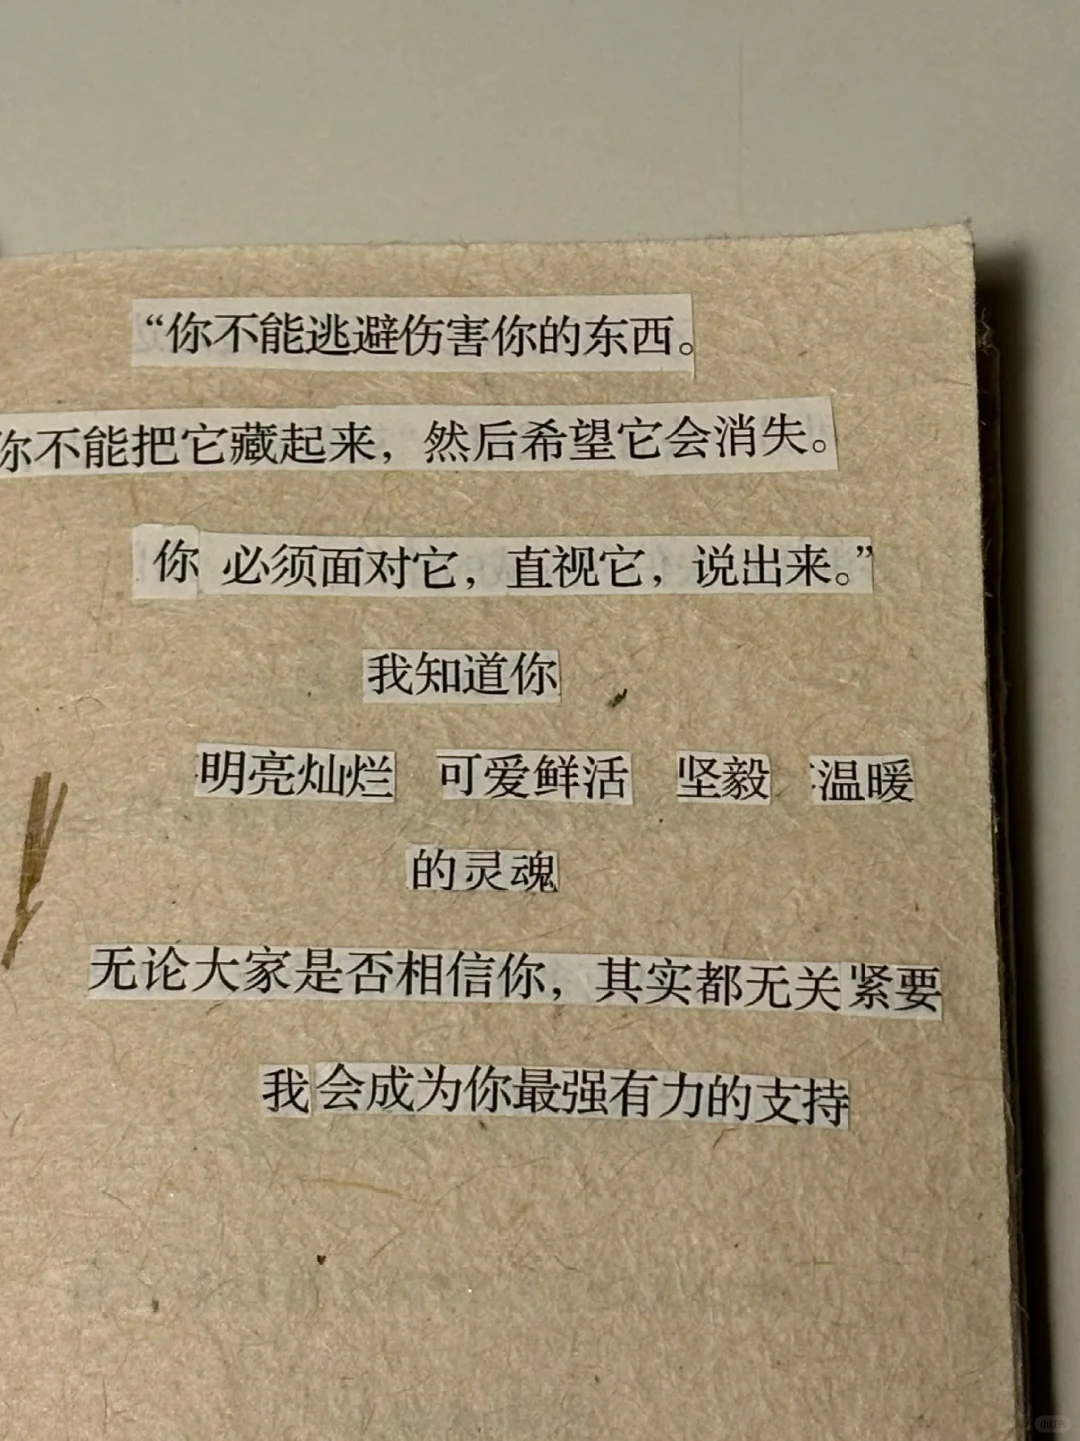 “你不能逃避伤害你的东西。
你不能把它藏起来，然后希望它会消失。
你 必须面对它，直视它，说出来。”
我知道你
明亮灿烂 可爱鲜活 坚毅 温暖
的灵魂
无论大家是否相信你，其实都无关紧要
我会成为你最强有力的支持